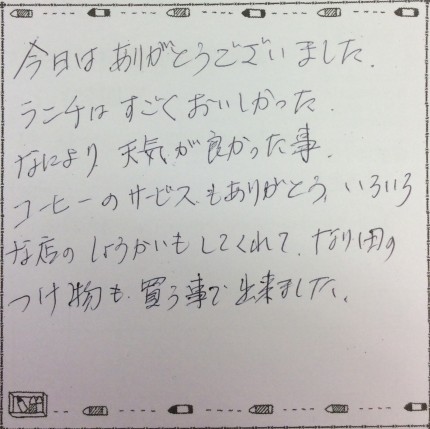 今日は ありがとうございました.
ランチは すごく おいしかった.
なにより 天気が良かった事.
コーヒーのサービスもありがとう, いろいろ
な店の しょうかいもしてくれて, なり田の
つけ物も, 買う事で出来ました.